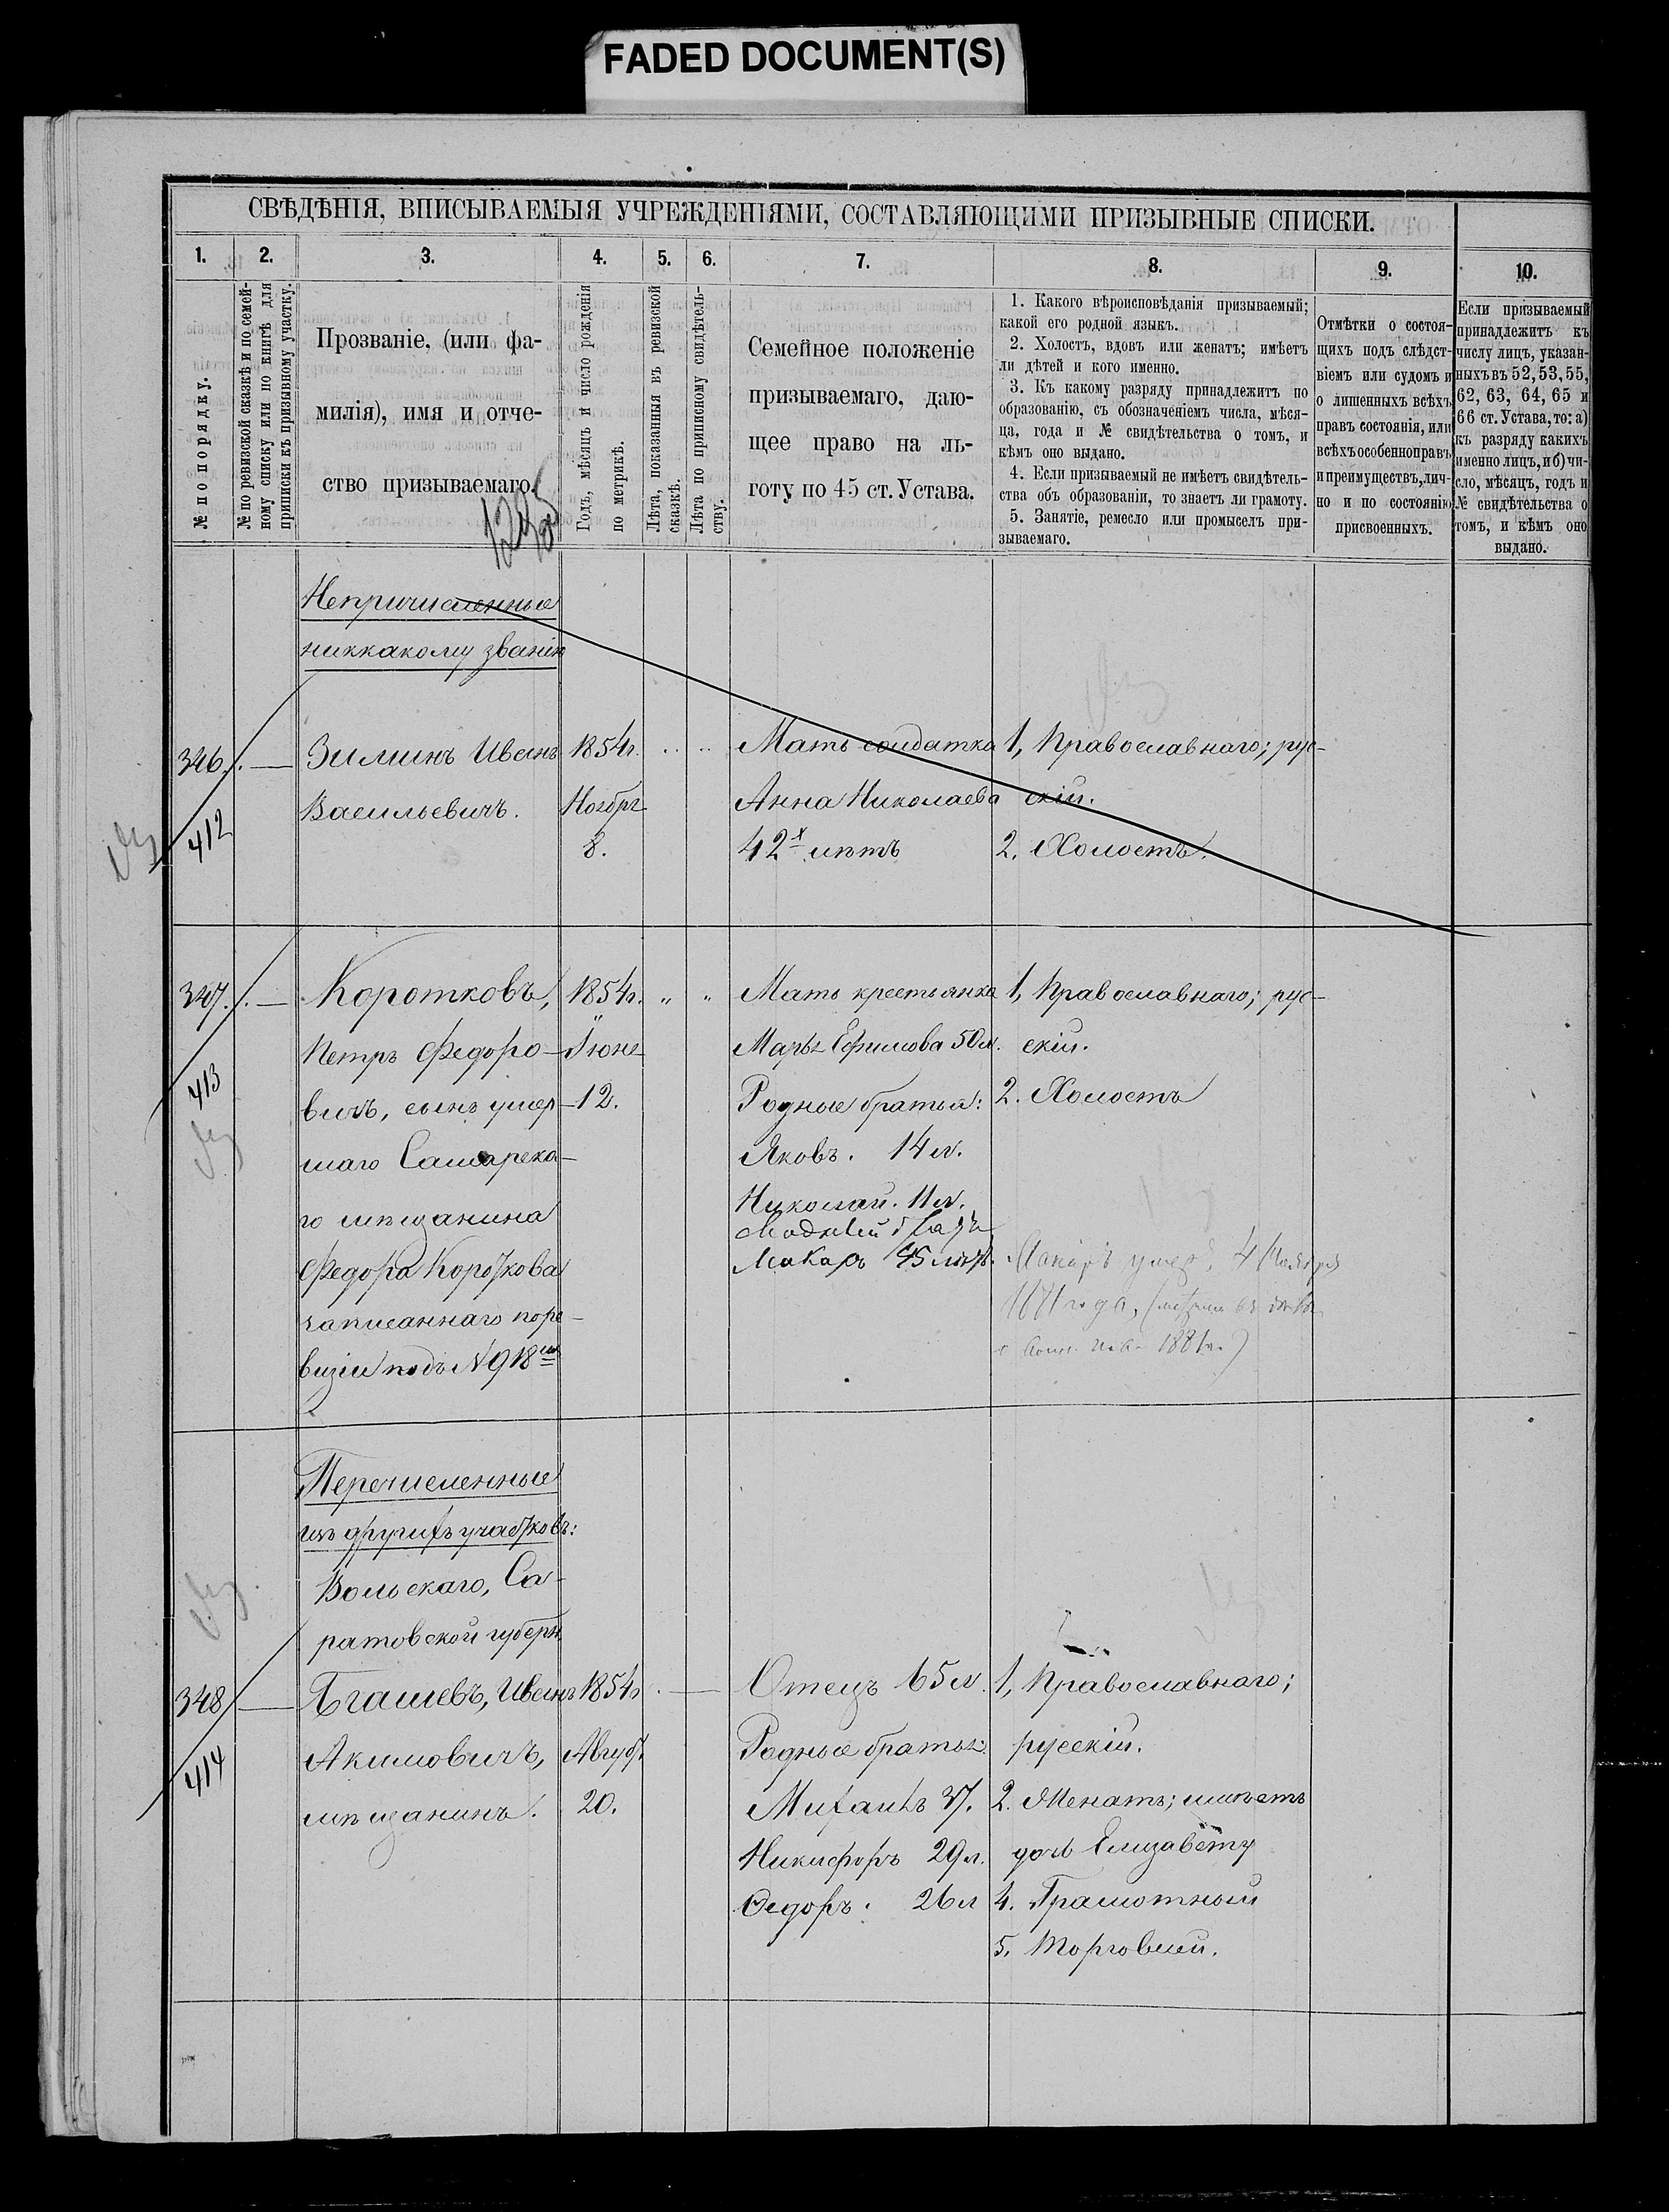 FADED DOCUMENT(S)
СВѢДѢНІЯ, ВПИСЫВАЕМЫЯ УЧРЕЖДЕНІЯМИ, СОСТАВЛЯЮЩИМИ ПРИЗЫВНЫЕ СПИСКИ.
1.
2.
3.
4.
5.
6.
7.
8.
9.
10.
№ по порядку.
№ по ревизской сказкѣ и по семей-
ному списку или по книгѣ для
приписки къ призывному участку.
Прозваніе, (или фа-
милія), имя и отче-
ство призываемаго.
Годъ, мѣсяцъ и число рожденія
по метрикѣ.
Лѣта, показанныя въ ревизской
сказкѣ.
Лѣта по приписному свидѣтель-
ству.
Семейное положеніе
призываемаго, даю-
щее право на ль-
готу по 45 ст. Устава.
1. Какого вѣроисповѣданія призываемый;
какой его родной языкъ.
2. Холостъ, вдовъ или женатъ; имѣетъ
ли дѣтей и кого именно.
3. Къ какому разряду принадлежитъ по
образованію, съ обозначеніемъ числа, мѣся-
ца, года и № свидѣтельства о томъ, и
кѣмъ оно выдано.
4. Если призываемый не имѣетъ свидѣтель-
ства объ образованіи, то знаетъ ли грамоту.
5. Занятіе, ремесло или промыселъ при-
зываемаго.
Отмѣтки о состоя-
щихъ подъ слѣдст-
віемъ или судомъ и
о лишенныхъ всѣхъ
правъ состоянія, или
всѣхъ особенно правъ
и преимуществъ, лич-
но и по состоянію
присвоенныхъ.
Если призываемый
принадлежитъ къ
числу лицъ, указан-
ныхъ въ 52, 53, 55,
62, 63, 64, 65 и
66 ст. Устава, то: а)
къ разряду какихъ
именно лицъ, и б) чи-
сло, мѣсяцъ, годъ и
№ свидѣтельства о
томъ, и кѣмъ оно
выдано.
Непричисленные
никкакому званію
346.
412
Зиминъ Иванъ
Васильевичъ.
1854г.
Ноября
8.
Мать солдатка
Анна Николаева
42х лѣтъ
1, Православнаго; рус-
скій.
2. Холостъ.
347.
413
Коротковъ,
Петръ Федоро-
вичъ, сынъ умер-
шаго Самарска-
го мѣщанина
Федора Короткова
записаннаго поре-
визіи подъ №918
1854г.
Іюня
12.
Мать крестьянка
Марья Ефимова 50л.
Родные братья:
Яковъ. 14 л.
Николай. 11 л.
Сводный братъ
Макаръ 45 лѣтъ.
1, Православнаго; рус-
скій.
2. Холостъ
Макаръ умеръ 4
1881 года,
1881г.)
Перечисленные
изъ другихъ участковъ:
Вольскаго, Са-
ратовской губерн.
348
414
Агашевъ, Иванъ
Акимовичъ,
мѣщанинъ.
1854г
Август.
20.
Отецъ 65 л.
Родные братья:
Михаилъ 37.
Никифоръ 29 л.
Федоръ. 26 л
1, Православнаго;
русскій.
2. Женатъ; имѣетъ
дочь Елизавету
4. Грамотный
5. Торговлей.